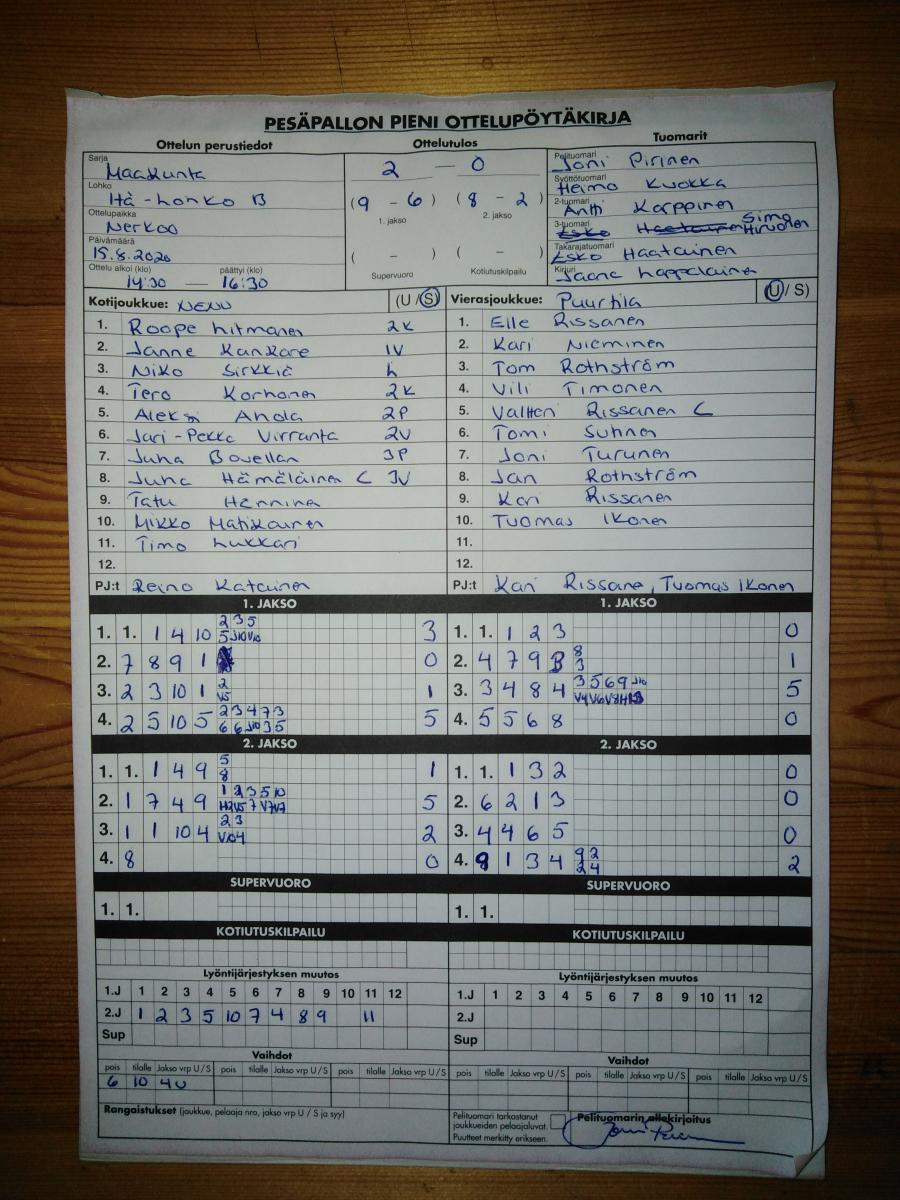 PESÄPALLON PIENI OTTELUPÖYTÄKIRJA
Ottelun perustiedot Ottelutulos Tuomarit
Sarja
Maakunta
Lohko
Itä-Lohko B
Ottelupaikka
Nerkoo
Päivämäärä
15.8.2020
Ottelu alkoi (klo) päättyi (klo)
14:30 — 16:30
2 — 0
(9 - 6) (8 - 2)
1. jakso 2. jakso
( - ) ( - )
Supervuoro Kotiutuskilpailu
Pelituomari
Joni Pirinen
Syöttötuomari
Heimo Kuokka
2-tuomari
Antti Karppinen
3-tuomari
Simo Hirvonen
Takarajatuomari
Esko Haatainen
Kirjuri
Jaana Lappalainen
Kotijoukkue: NENU (U / S)
1. Roope Litmanen 2K
2. Janne Kankare 1V
3. Niko Sirkkiä L
4. Tero Korhonen 2K
5. Aleksi Ahola 2P
6. Jari-Pekka Virranta 2V
7. Juha Bovellan 3P
8. Juha Hämäläinen C 3V
9. Tatu Hänninen
10. Mikko Matikainen
11. Timo Lukkari
12.
PJ:t Reino Katainen
Vierasjoukkue: Puurtila (U / S)
1. Elle Rissanen
2. Kari Nieminen
3. Tom Rothström
4. Vili Timonen
5. Valtteri Rissanen C
6. Tomi Suhnen
7. Joni Turunen
8. Jan Rothström
9. Kari Rissanen
10. Tuomas Ikonen
11.
12.
PJ:t Kari Rissane, Tuomas Ikonen
1. JAKSO
1. 1. 1 4 10 2 3 5 3
2. 7 8 9 1 0
3. 2 3 10 1 2 V5 1
4. 2 5 10 5 2 3 4 7 3 5
2. JAKSO
1. 1. 1 4 9 5 8 1
2. 1 7 4 9 1 2 3 5 10 5
3. 1 1 10 4 2 3 2
4. 8 0
SUPERVUORO
1. 1.
KOTIUTUSKILPAILU
1. JAKSO
1. 1. 1 2 3 0
2. 4 7 9 3 8 3 1
3. 3 4 8 4 3 5 6 9 J10 5
4. 5 5 6 8 0
2. JAKSO
1. 1. 1 3 2 0
2. 6 2 1 3 0
3. 4 4 6 5 0
4. 9 1 3 4 9 2 2 4 2
SUPERVUORO
1. 1.
KOTIUTUSKILPAILU
Lyöntijärjestyksen muutos
1.J 1 2 3 4 5 6 7 8 9 10 11 12
2.J 1 2 3 5 10 7 4 8 9 11
Sup
Vaihdot
pois tilalle Jakso vrp U/S pois tilalle Jakso vrp U/S pois tilalle Jakso vrp U/S
6 10 4U
Rangaistukset (joukkue, pelaaja nro, jakso vrp U / S ja syy)
Lyöntijärjestyksen muutos
1.J 1 2 3 4 5 6 7 8 9 10 11 12
2.J
Sup
Vaihdot
pois tilalle Jakso vrp U/S pois tilalle Jakso vrp U/S pois tilalle Jakso vrp U/S
Pelituomari tarkastanut
joukkueiden pelaajaluvat.
Puutteet merkitty erikseen.
Pelituomarin allekirjoitus